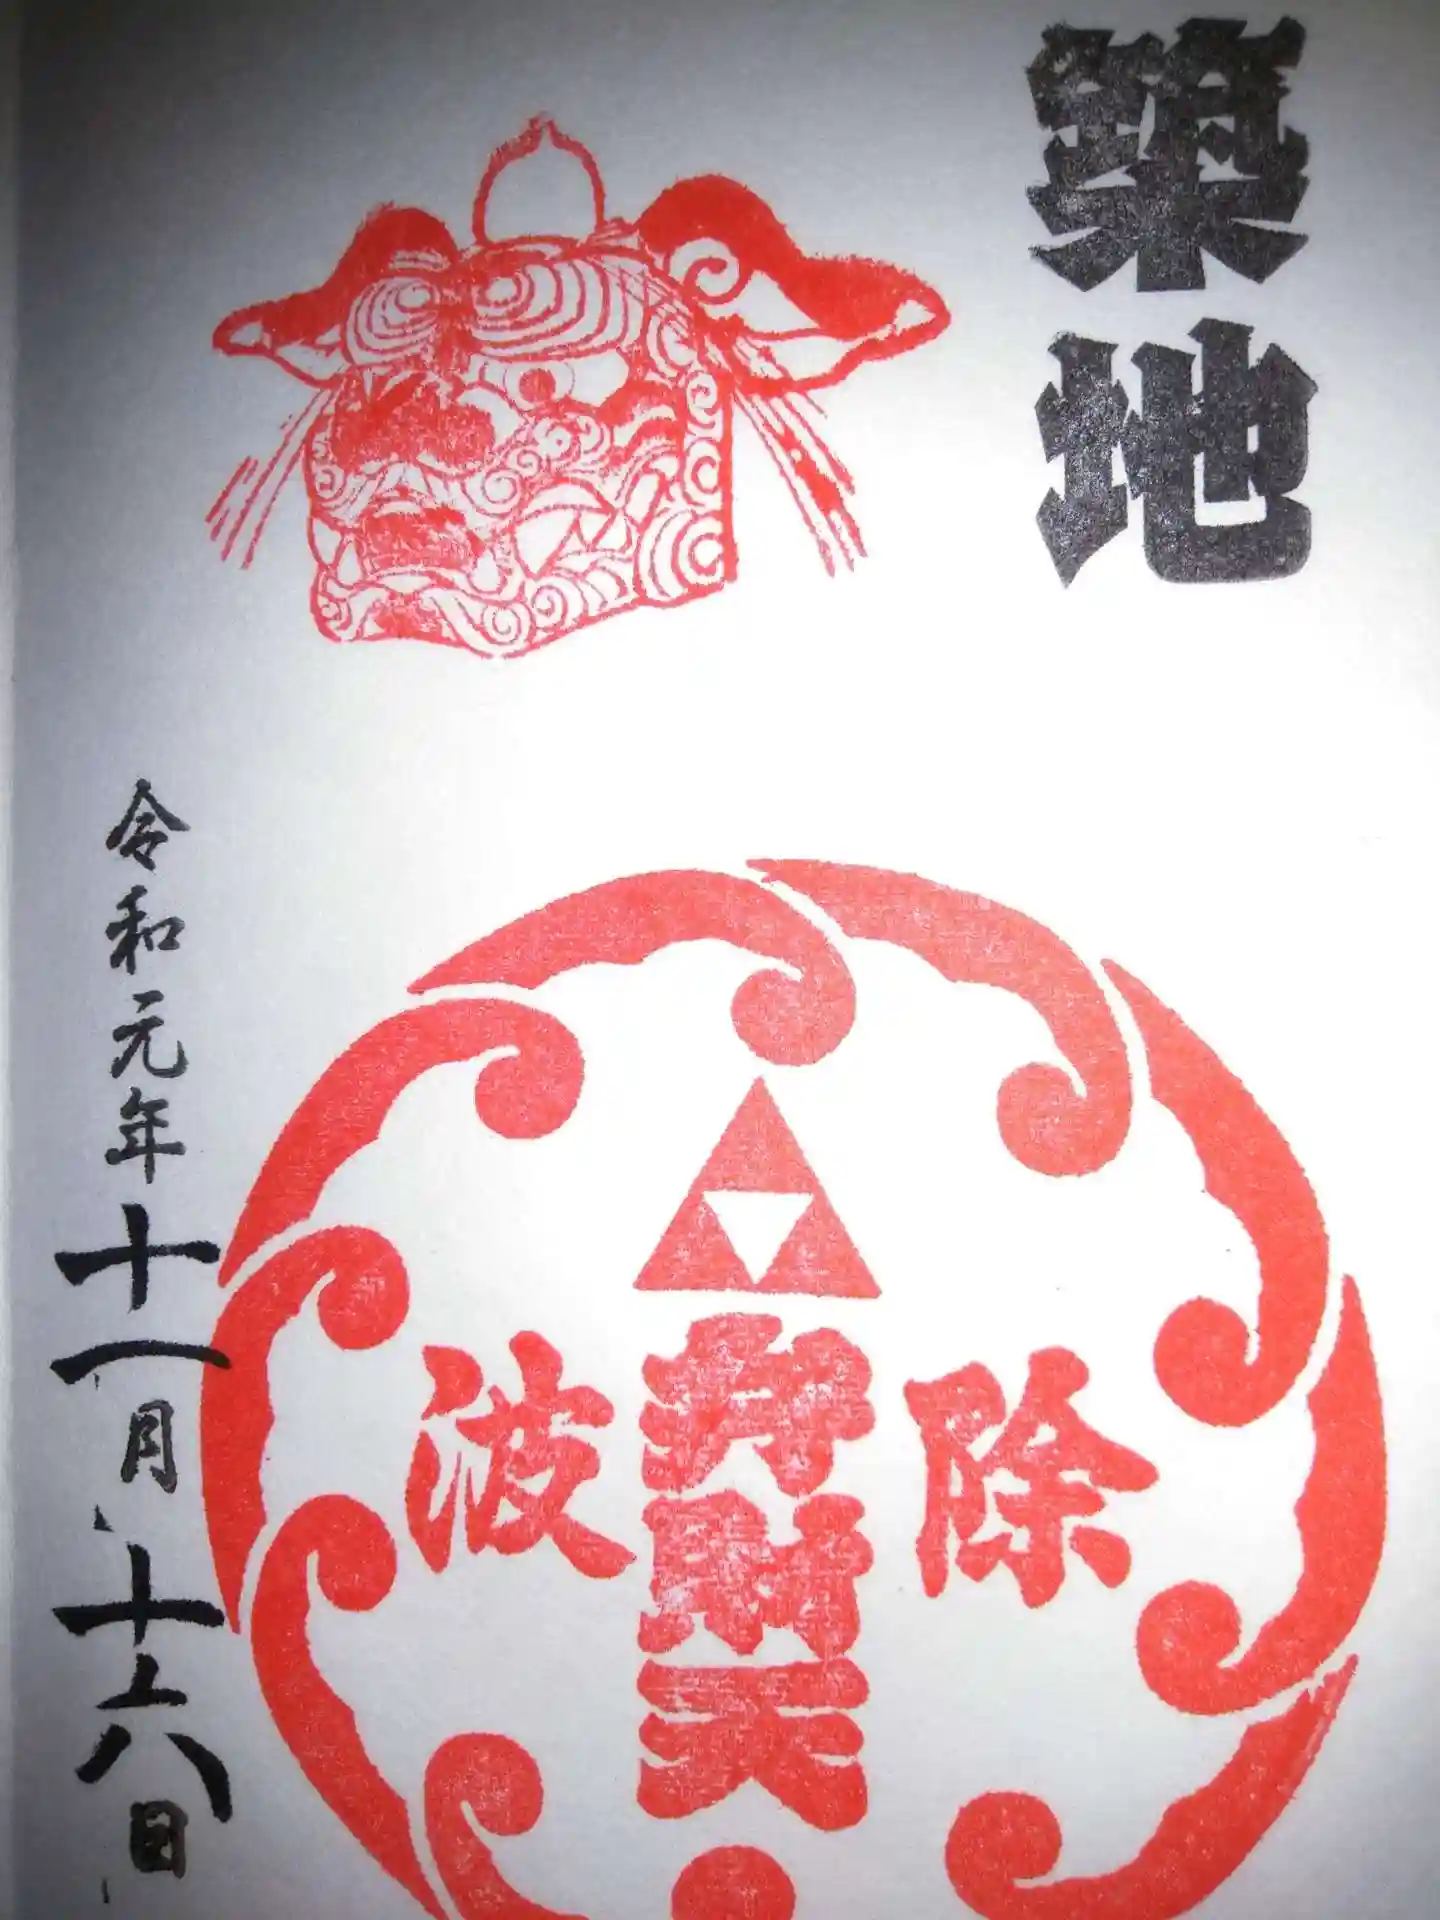 築地
除
弁財天
波
令和元年十一月十六日